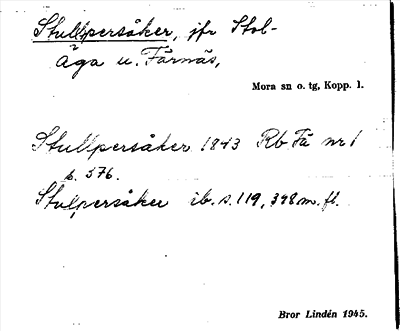 Stullpersåker, jfr Stol-
Äga u. Färnäs,
Mora sn o. tg, Kopp. l.
Stullpersåker 1843 Rb Fä nr 1
s. 376.
Stolpersåker ib. s. 119, 398 m. fl.
Bror Lindén 1945.